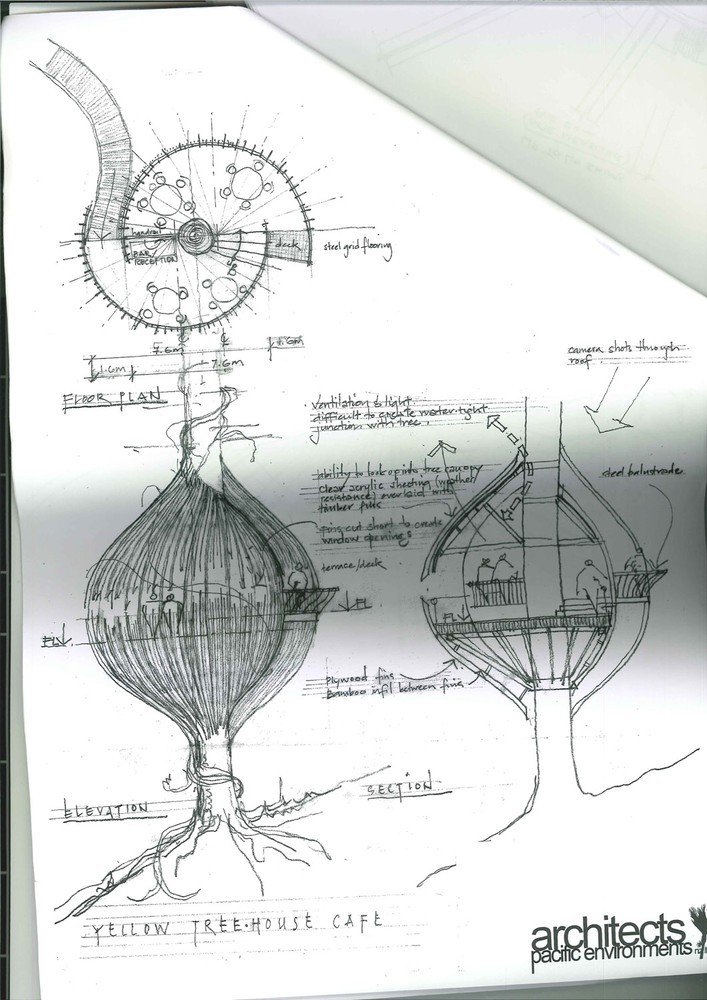 handrail
BAR
RECEPTION
deck
steel grid flooring
7.6m
1.6m
1.6m
7.6m
FLOOR PLAN
camera shots through
roof.
Ventilation & light
difficult to create water-tight
junction with tree.
ability to look up into tree canopy
clear acrylic sheeting (weather
resistance) overlaid with
timber fins
fins cut short to create
window openings
steel balustrade
terrace/deck
FL
FL
FL
plywood fins
Bamboo infil between fins
SECTION
ELEVATION
YELLOW TREE·HOUSE CAFE
architects
pacific environments